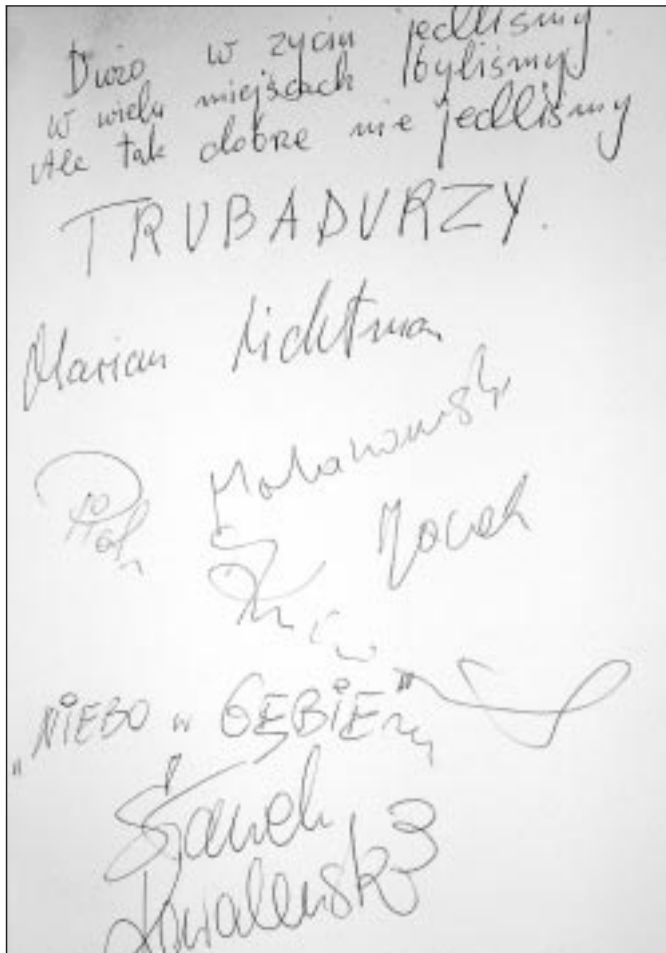 Dużo w życiu jedliśmy.
W wielu miejscach byliśmy
Ale tak dobrze nie jedliśmy
TRUBADURZY.
Marian Lichtman
Piotr
Jacek
„NIEBO w GĘBIE"
Sławek
Kowalewski